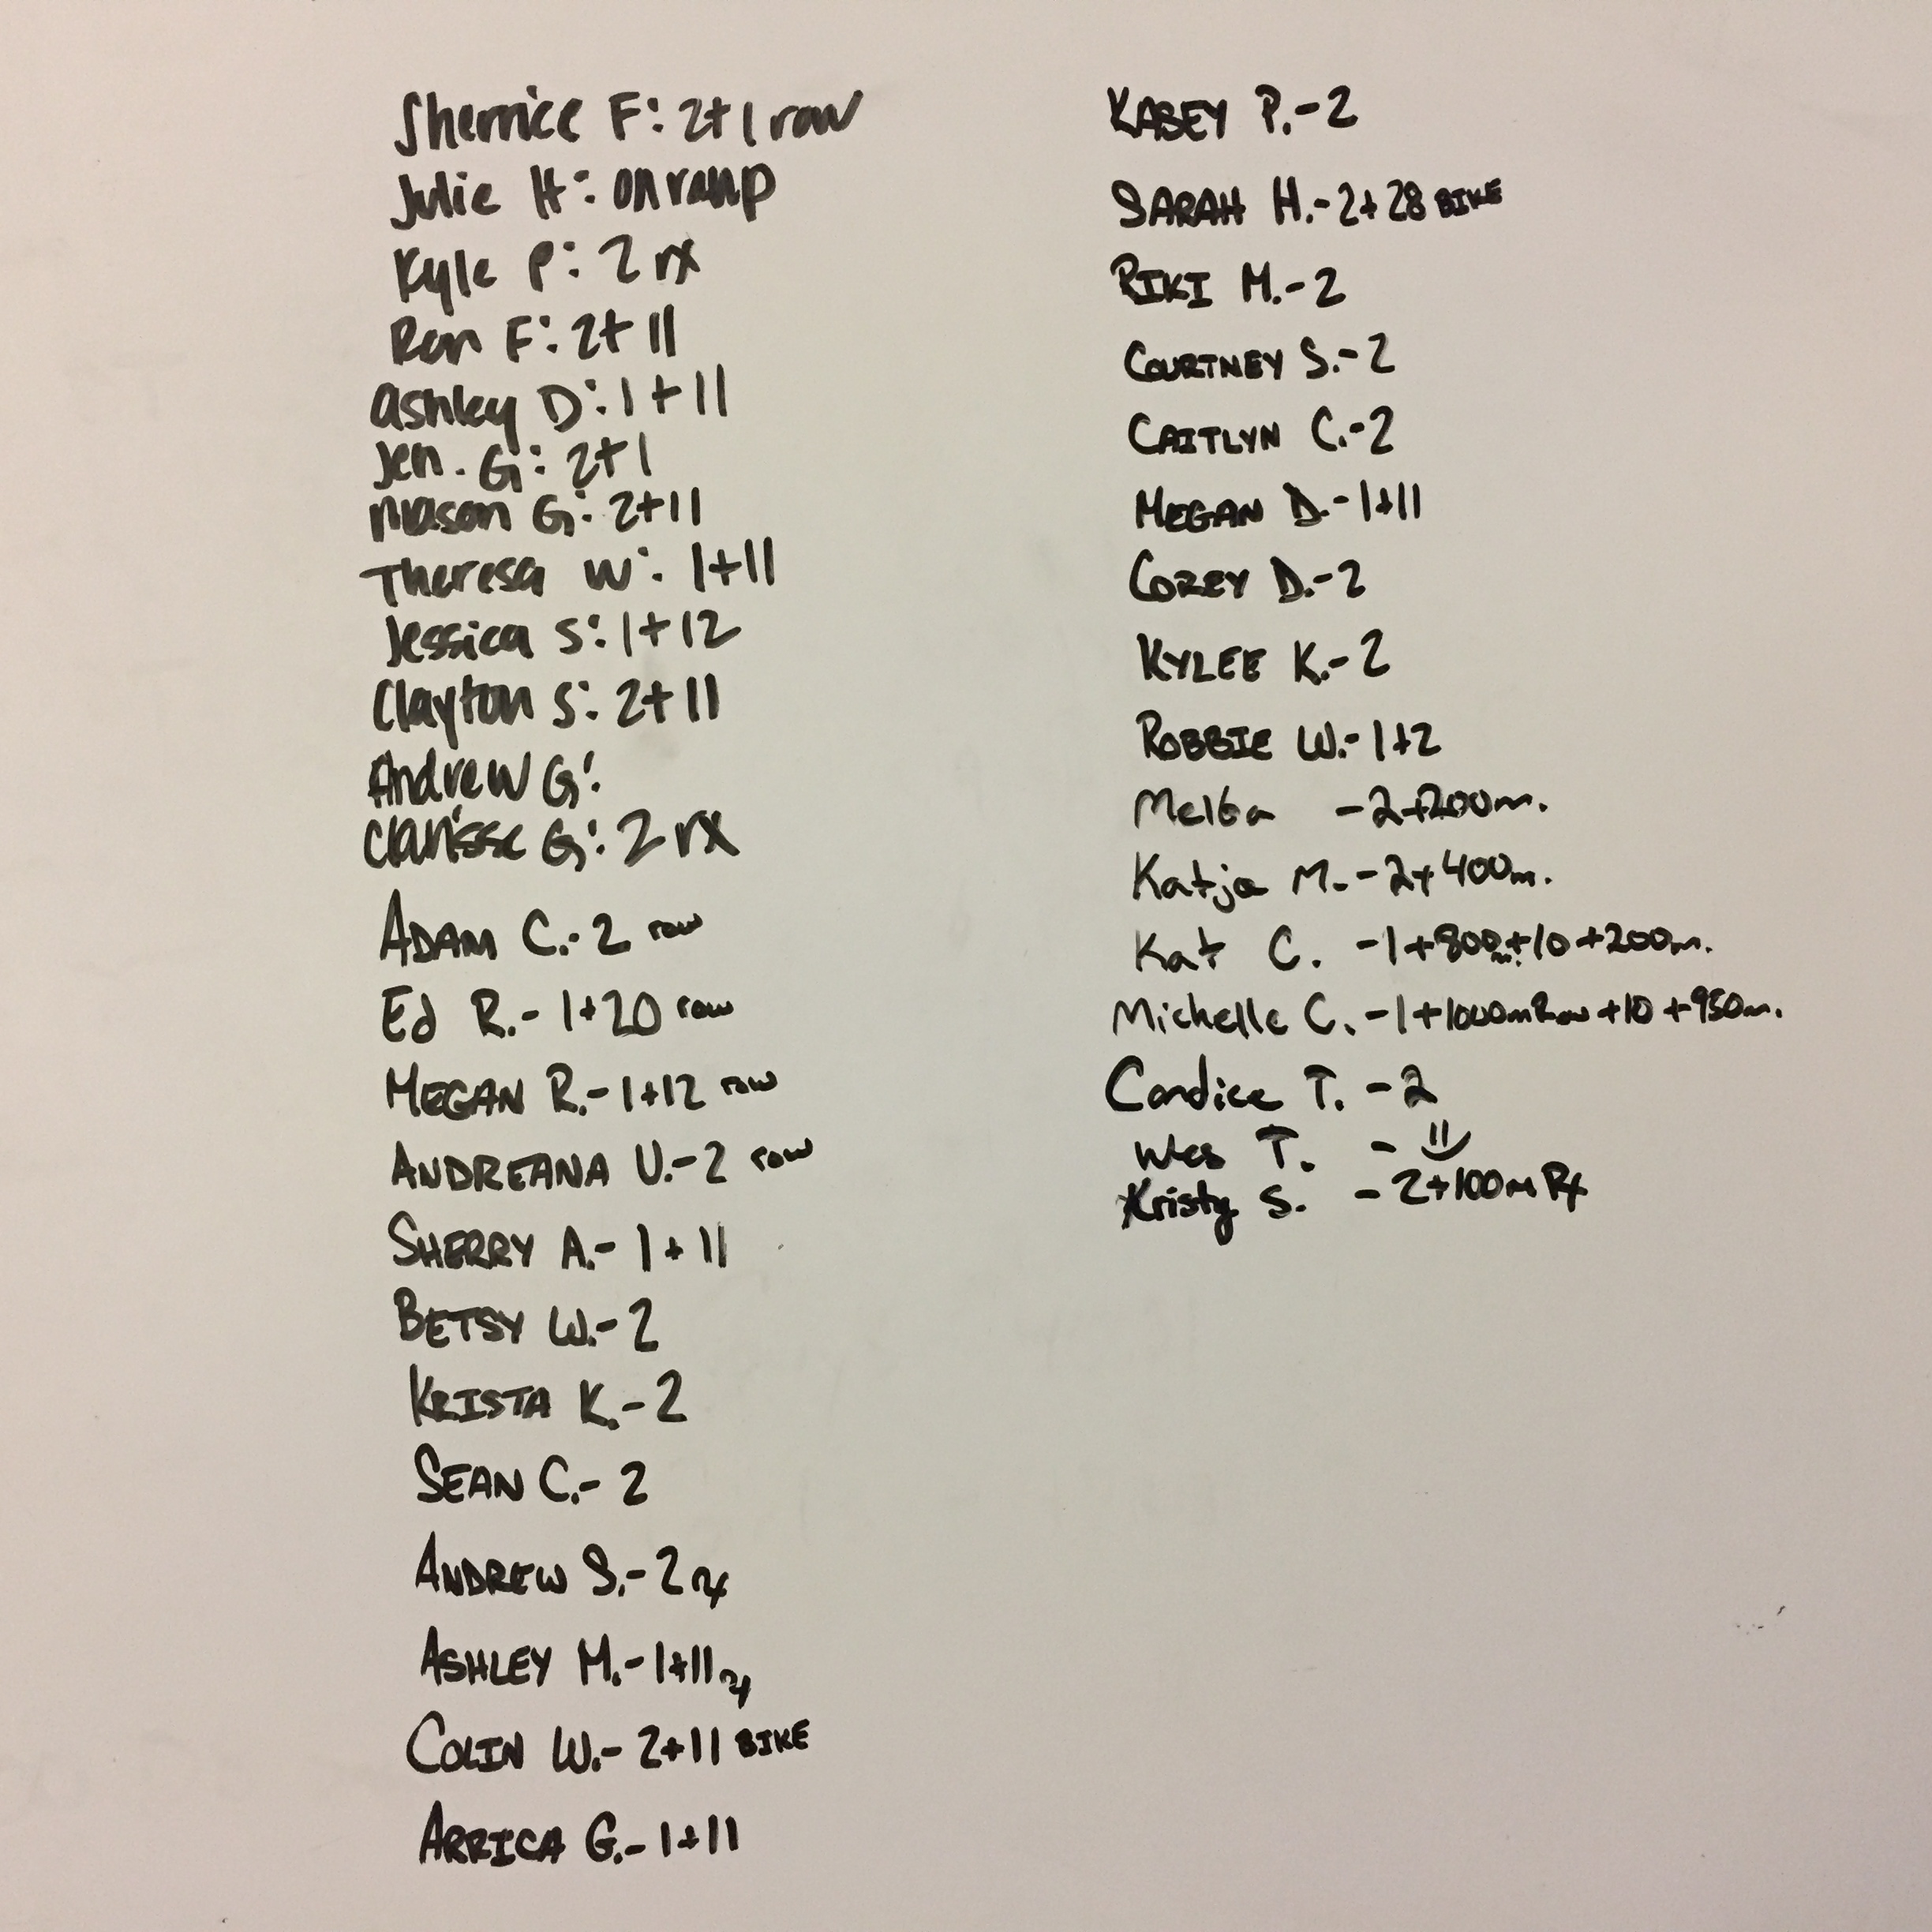 Sherrice F: 2+1 row
Julie H: on ramp
Kyle P: 2 rx
Ron F: 2+11
Ashley D: 1+11
Jen. G: 2+1
Mason G: 2+11
Theresa W: 1+11
Jessica S: 1+12
Clayton S: 2+11
Andrew G:
Clarisse G: 2 rx
ADAM C.- 2 row
Ed R.- 1+20 row
MEGAN R.- 1+12 row
ANDREANA U.- 2 row
SHERRY A.- 1+11
BETSY W.- 2
KRISTA K.- 2
SEAN C.- 2
ANDREW S.- 2 rx
ASHLEY M.- 1+11 rx
COLIN W.- 2+11 BIKE
ARRICA G.- 1+11
KASEY P.- 2
SARAH H.- 2+28 BIKE
RIKI M.- 2
COURTNEY S.- 2
CAITLYN C.- 2
MEGAN D.- 1+11
COREY D.- 2
KYLEE K.- 2
ROBBIE W.- 1+2
Melba - 2+200m.
Katja M. - 2+400m.
Kat C. - 1+800m+10+200m.
Michelle C. - 1+1000mRow+10+950m.
Candice T. - 2
Wes T. - 
Kristy S. - 2+100m Rx